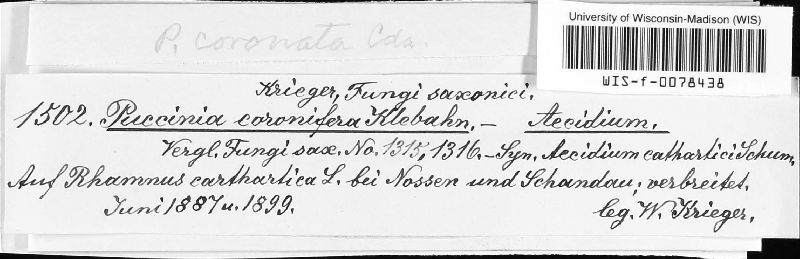 University of Wisconsin-Madison (WIS)
WIS-f-0078438
P. coronata Cda.
Krieger, Fungi saxonici.
1502. Puccinia coronifera Klebahn. – Aecidium.
Vergl. Fungi sax. No. 1315, 1316. – Syn. Aecidium cathartici Schum.
Auf Rhamnus carthartica L. bei Nossen und Schandau; verbreitet.
Juni 1887 u. 1899. leg. W. Krieger.